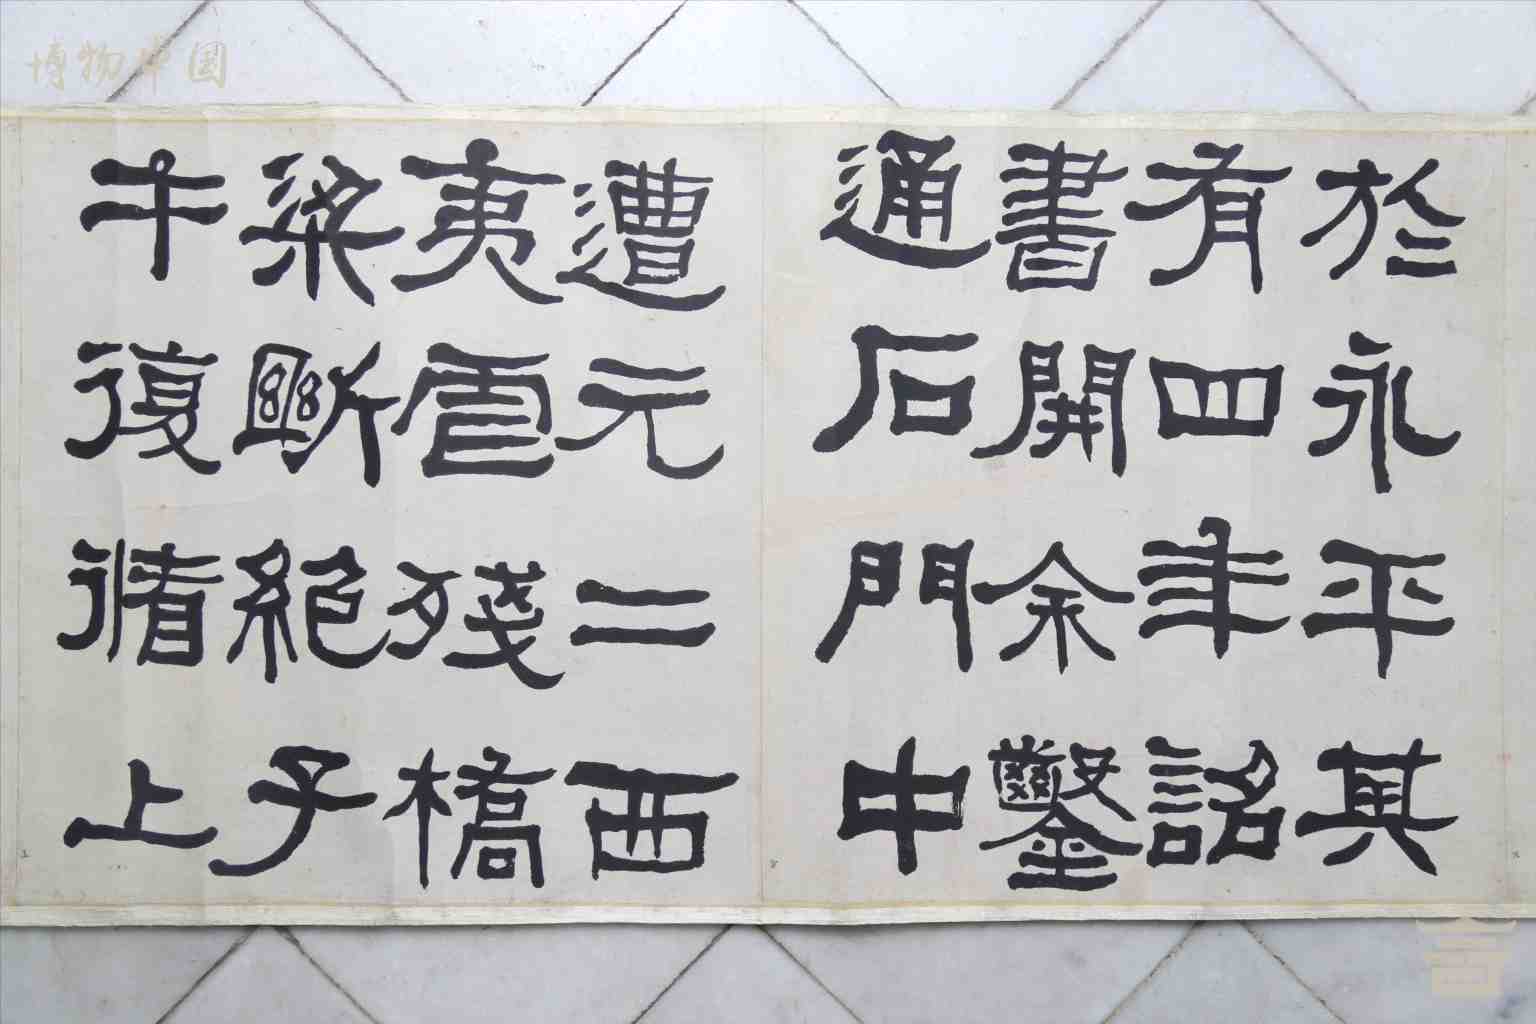 博物中国
於永平其
有四年詔
書開余鑿
通石門中
遭元二西
夷虐殘橋
梁斷絕子
午復循上